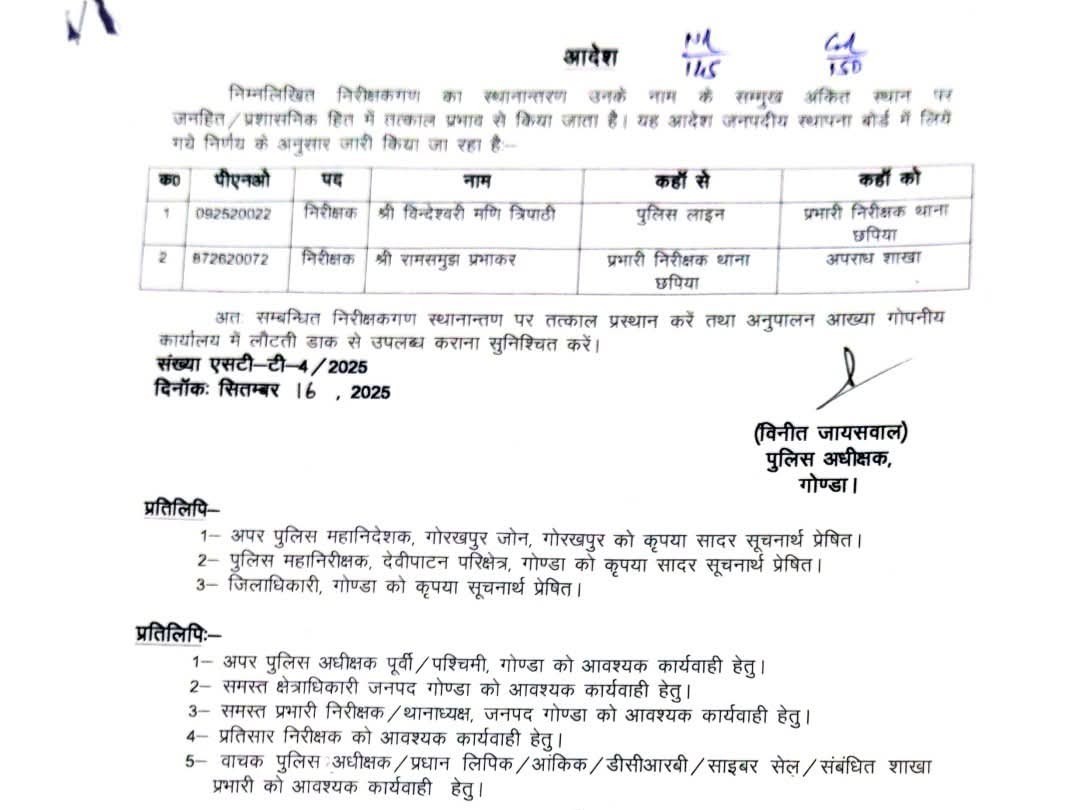 आदेश
145
150
निम्नलिखित निरीक्षकगण का स्थानान्तरण उनके नाम के सम्मुख अंकित स्थान पर
जनहित/प्रशासनिक हित में तत्काल प्रभाव से किया जाता है। यह आदेश जनपदीय स्थापना बोर्ड में लिये
गये निर्णय के अनुसार जारी किया जा रहा है:–
क0 पीएनओ पद नाम कहाँ से कहाँ को
1 092520022 निरीक्षक श्री विन्देश्वरी मणि त्रिपाठी पुलिस लाइन प्रभारी निरीक्षक थाना
छपिया
2 872620072 निरीक्षक श्री रामसमुझ प्रभाकर प्रभारी निरीक्षक थाना अपराध शाखा
छपिया
अतः सम्बन्धित निरीक्षकगण स्थानान्तण पर तत्काल प्रस्थान करें तथा अनुपालन आख्या गोपनीय
कार्यालय में लौटती डाक से उपलब्ध कराना सुनिश्चित करें।
संख्या एसटी–टी–4/2025
दिनॉकः सितम्बर 16 , 2025
(विनीत जायसवाल)
पुलिस अधीक्षक,
गोण्डा।
प्रतिलिपि–
1– अपर पुलिस महानिदेशक, गोरखपुर जोन, गोरखपुर को कृपया सादर सूचनार्थ प्रेषित।
2– पुलिस महानिरीक्षक, देवीपाटन परिक्षेत्र, गोण्डा को कृपया सादर सूचनार्थ प्रेषित।
3– जिलाधिकारी, गोण्डा को कृपया सूचनार्थ प्रेषित।
प्रतिलिपिः–
1– अपर पुलिस अधीक्षक पूर्वी/पश्चिमी, गोण्डा को आवश्यक कार्यवाही हेतु।
2– समस्त क्षेत्राधिकारी जनपद गोण्डा को आवश्यक कार्यवाही हेतु।
3– समस्त प्रभारी निरीक्षक/थानाध्यक्ष, जनपद गोण्डा को आवश्यक कार्यवाही हेतु।
4– प्रतिसार निरीक्षक को आवश्यक कार्यवाही हेतु।
5– वाचक पुलिस अधीक्षक/प्रधान लिपिक/आंकिक/डीसीआरबी/साइबर सेल/संबंधित शाखा
प्रभारी को आवश्यक कार्यवाही हेतु।